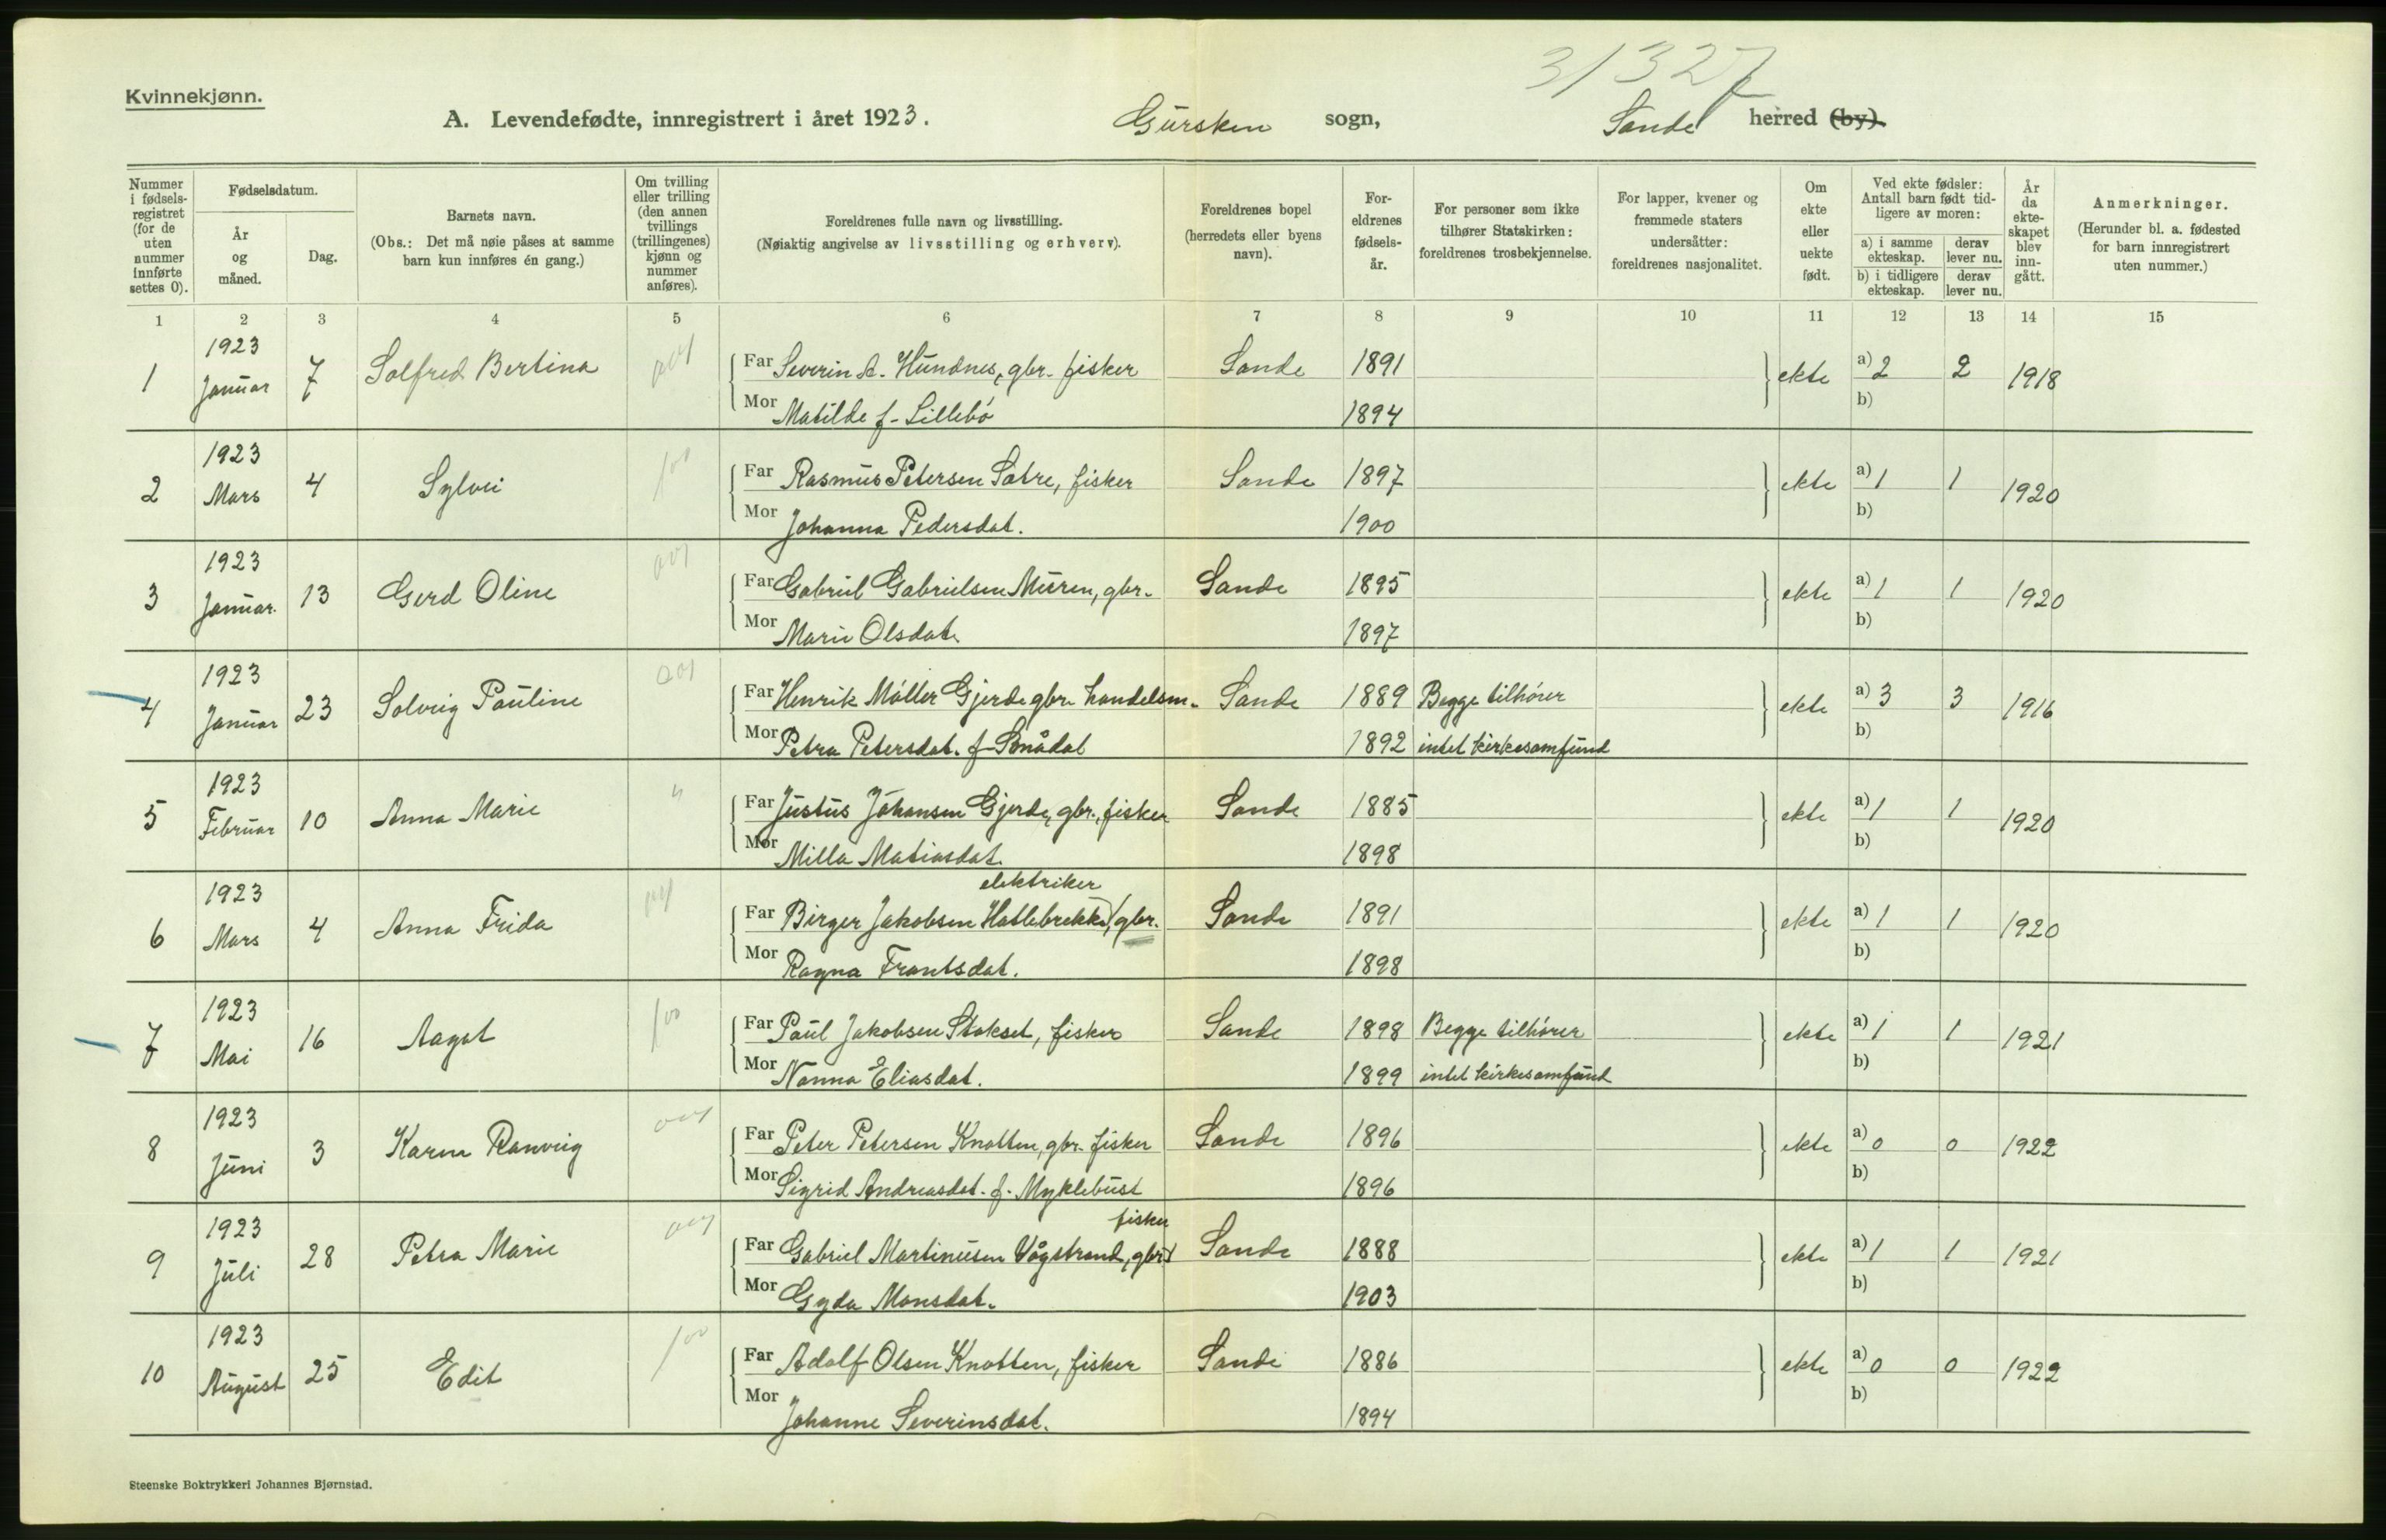 31327
Kvinnekjønn.
A. Levendefødte, innregistrert i året 1923. Gursken sogn, Sande herred (by).
Nummer i fødselsregistret (for de uten nummer innførte settes 0).
Fødselsdatum.
År og måned.
Dag.
Barnets navn.
(Obs.: Det må nøie påses at samme barn kun innføres én gang.)
Om tvilling eller trilling (den annen tvillings (trillingenes) kjønn og nummer anføres).
Foreldrenes fulle navn og livsstilling.
(Nøiaktig angivelse av livsstilling og erhverv).
Foreldrenes bopel (herredets eller byens navn).
Foreldrenes fødselsår.
For personer som ikke tilhører Statskirken: foreldrenes trosbekjennelse.
For lapper, kvener og fremmede staters undersåtter: foreldrenes nasjonalitet.
Om ekte eller uekte født.
Ved ekte fødsler: Antall barn født tidligere av moren:
a) i samme ekteskap. derav lever nu.
b) i tidligere ekteskap. derav lever nu.
År da ekteskapet blev inngått.
Anmerkninger.
(Herunder bl. a. fødested for barn innregistrert uten nummer.)
1 2 3 4 5 6 7 8 9 10 11 12 13 14 15
1 1923 Januar 7 Solfred Bertina Far Severin A. Hundnes, gbr. fisker Sande 1891 ekte a) 2 2 1918
Mor Matilde f. Lillebö 1894 b)
2 1923 Mars 4 Sylvi Far Rasmus Petersen Sætre, fisker Sande 1897 ekte a) 1 1 1920
Mor Johanna Pedersdat. 1900 b)
3 1923 Januar. 13 Gerd Oline Far Gabriel Gabrielsen Muren, gbr. Sande 1895 ekte a) 1 1 1920
Mor Marie Olsdat. 1897 b)
4 1923 Januar 23 Solveig Pauline Far Henrik Möller Gjerde gbr. handelsm. Sande 1889 Begge tilhörer ekte a) 3 3 1916
Mor Petra Petersdat. f. 1892 intet kirkesamfund b)
5 1923 Februar 10 Anna Marie Far Justus Johansen Gjerde, gbr., fisker Sande 1885 ekte a) 1 1 1920
Mor Milla Matiasdat. 1898 b)
elektriker
6 1923 Mars 4 Anna Frida Far Birger Jakobsen Hatlebrekke, gbr. Sande 1891 ekte a) 1 1 1920
Mor Ragna Frantsdat. 1898 b)
7 1923 Mai 16 Aagot Far Paul Jakobsen Stokset, fisker Sande 1898 Begge tilhörer ekte a) 1 1 1921
Mor Nanna Eliasdat. 1899 intet kirkesamfund b)
8 1923 Juni 3 Karen Ranveig Far Peter Petersen Knotten, gbr. fisker Sande 1896 ekte a) 0 0 1922
Mor Sigrid Andreasdat. f. Myklebust 1896 b)
fisker
9 1923 Juli 28 Petra Marie Far Gabriel Martinusen Vågstrand, gbr. Sande 1888 ekte a) 1 1 1921
Mor Gyda Monsdat. 1903 b)
10 1923 August 25 Edit Far Adolf Olsen Knotten, fisker Sande 1886 ekte a) 0 0 1922
Mor Johanne Severinsdat. 1894 b)
Steenske Boktrykkeri Johannes Bjørnstad.